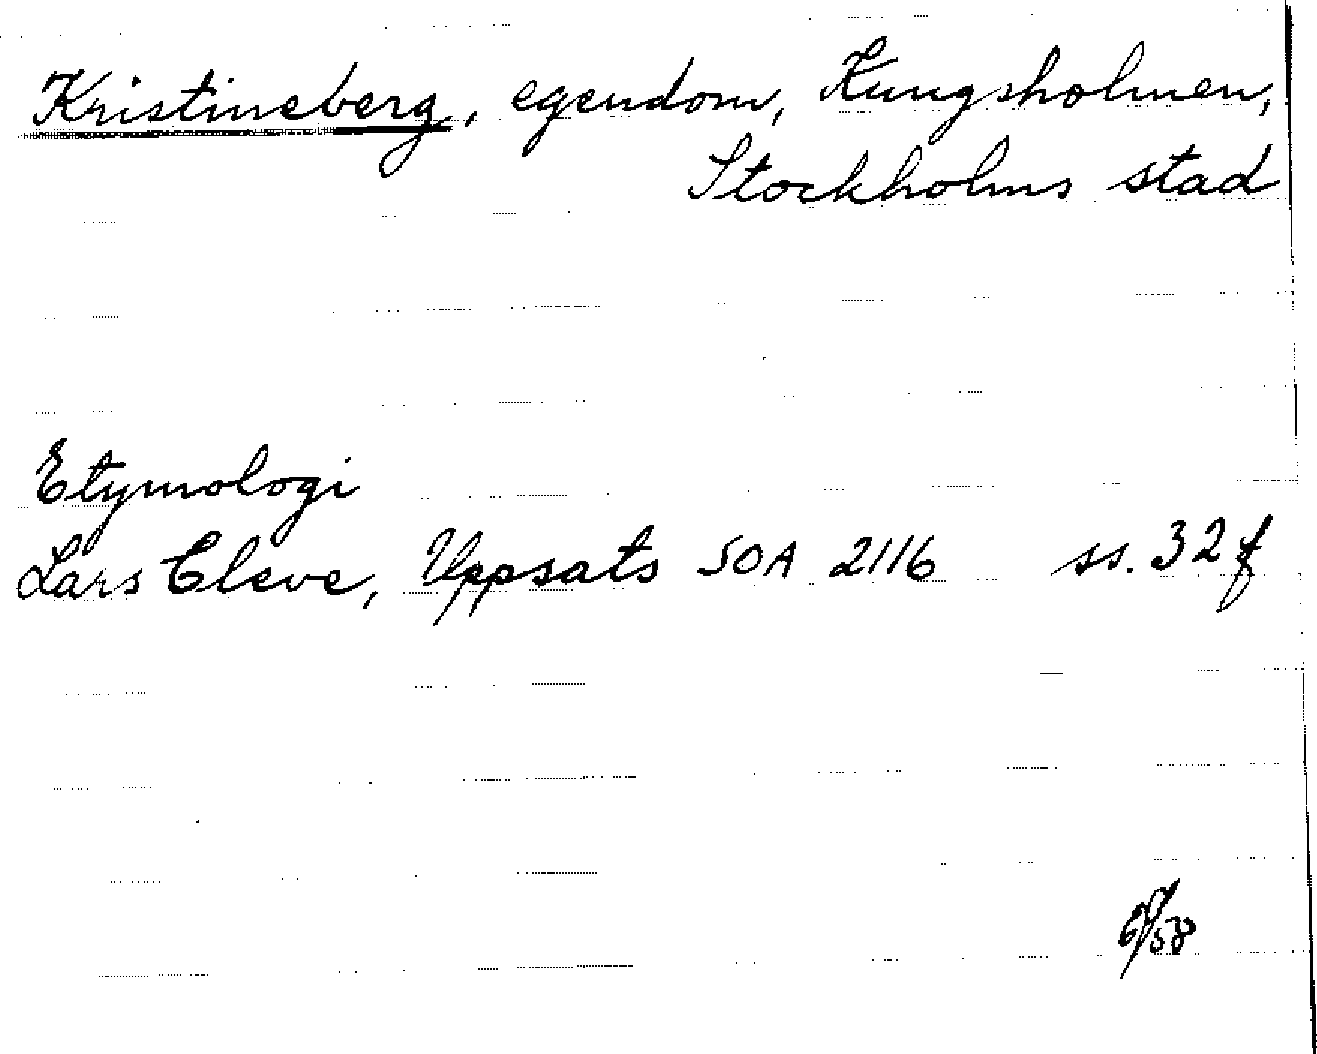 Kristineberg, egendom, Kungsholmen,
Stockholms stad
Etymologi
Lars Cleve, Uppsats SOA 2116 ss. 32 f